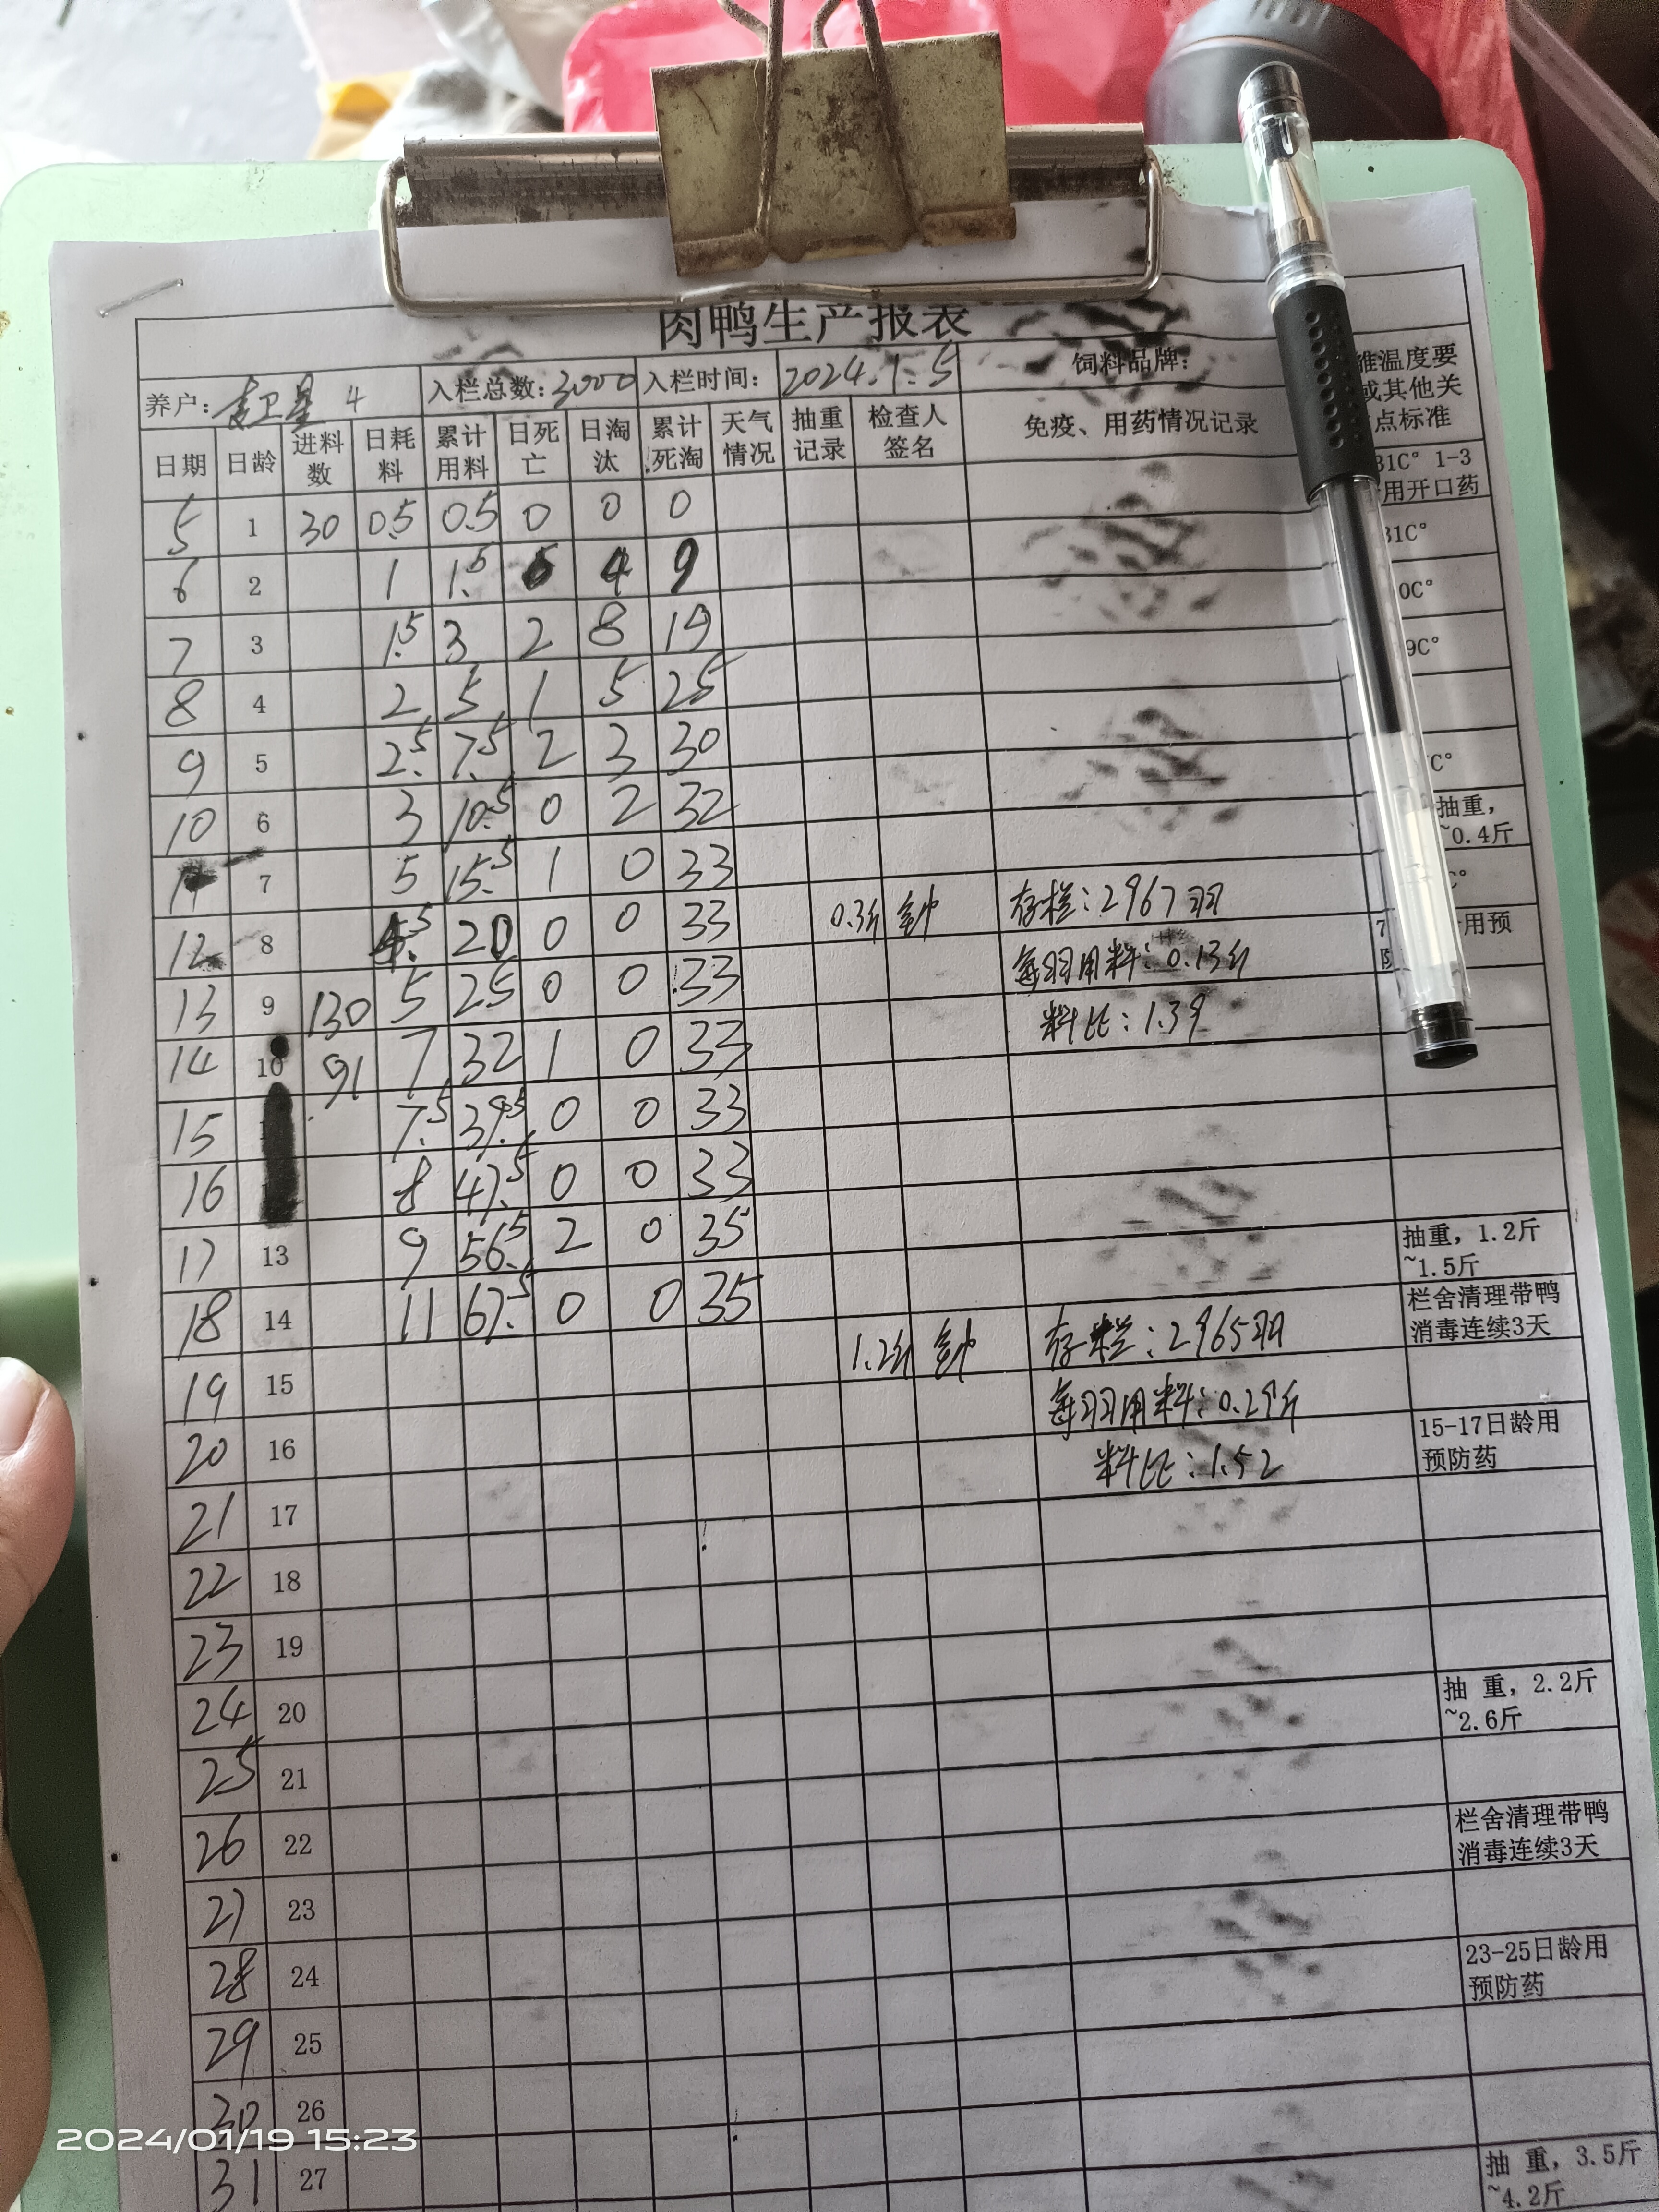 肉鸭生产报表
养户: 卫星 4 入栏总数: 3000 入栏时间: 2024.1.5 饲料品牌: 雏温度要
或其他关
点标准
日期 日龄 进料数 日耗料 累计用料 日死亡 日淘汰 累计死淘 天气情况 抽重记录 检查人签名 免疫、用药情况记录
31C° 1-3
用开口药
5 1 30 0.5 0.5 0 0 0 31C°
6 2 1 1.5 5 4 9 0C°
7 3 1.5 3 2 8 19 9C°
8 4 2 5 1 5 25
9 5 2.5 7.5 2 3 30 C°
10 6 3 10.5 0 2 32 抽重,
~0.4斤
11 7 5 15.5 1 0 33 C°
0.3斤 钟 存栏:2967羽
12 8 4.5 20 0 0 33 用预
每羽用料:0.13斤
13 9 130 5 25 0 0 33
料比:1.39
14 10 91 7 32 1 0 33
15 7.5 39.5 0 0 33
16 8 47.5 0 0 33
17 13 9 56.5 2 0 35 抽重, 1.2斤
~1.5斤
18 14 11 67.5 0 0 35 栏舍清理带鸭
消毒连续3天
1.2斤 钟 存栏:2965羽
19 15 每羽用料:0.29斤
20 16 料比:1.52 15-17日龄用
预防药
21 17
22 18
23 19
24 20 抽 重, 2.2斤
~2.6斤
25 21
26 22 栏舍清理带鸭
消毒连续3天
27 23
28 24 23-25日龄用
预防药
29 25
30 26
31 27 抽 重, 3.5斤
~4.2斤
2024/01/19 15:23